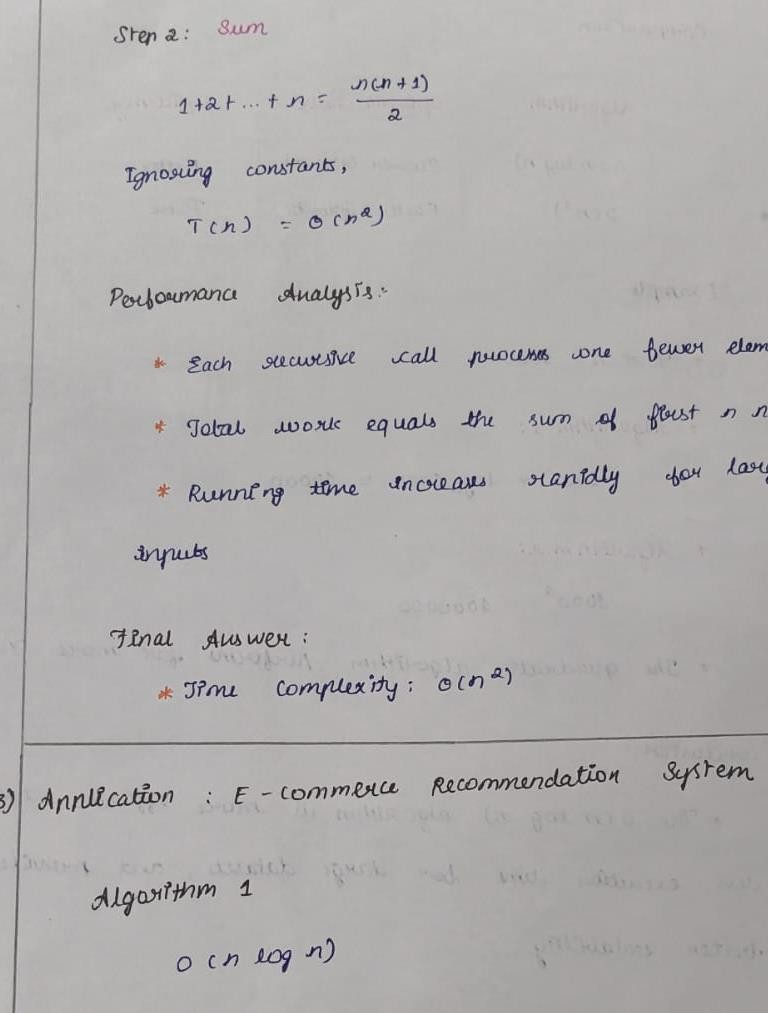 Step 2: Sum
1+2+...+n = n(n+1)/2
Ignoring constants,
T(n) = O(n²)
Performance Analysis:-
* Each recursive call processes one fewer elem
* Total work equals the sum of first n n
* Running time increases rapidly for larg
inputs
Final Answer:
* Time complexity: O(n²)
3) Application : E-commerce Recommendation System
Algorithm 1
O(n log n)